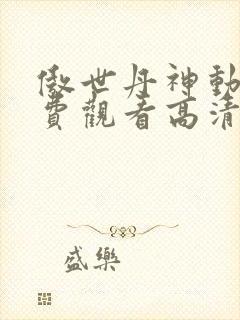 傲世丹神動
費觀看高清
盛樂